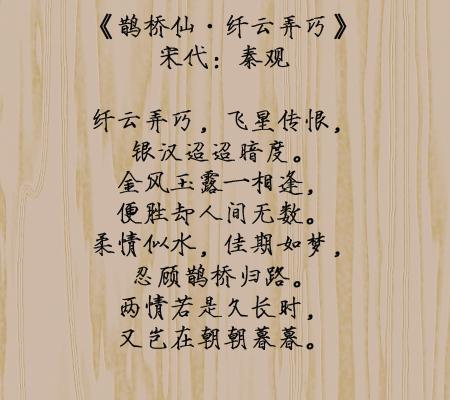 《鹊桥仙·纤云弄巧》
宋代：秦观
纤云弄巧，飞星传恨，
银汉迢迢暗度。
金风玉露一相逢，
便胜却人间无数。
柔情似水，佳期如梦，
忍顾鹊桥归路。
两情若是久长时，
又岂在朝朝暮暮。